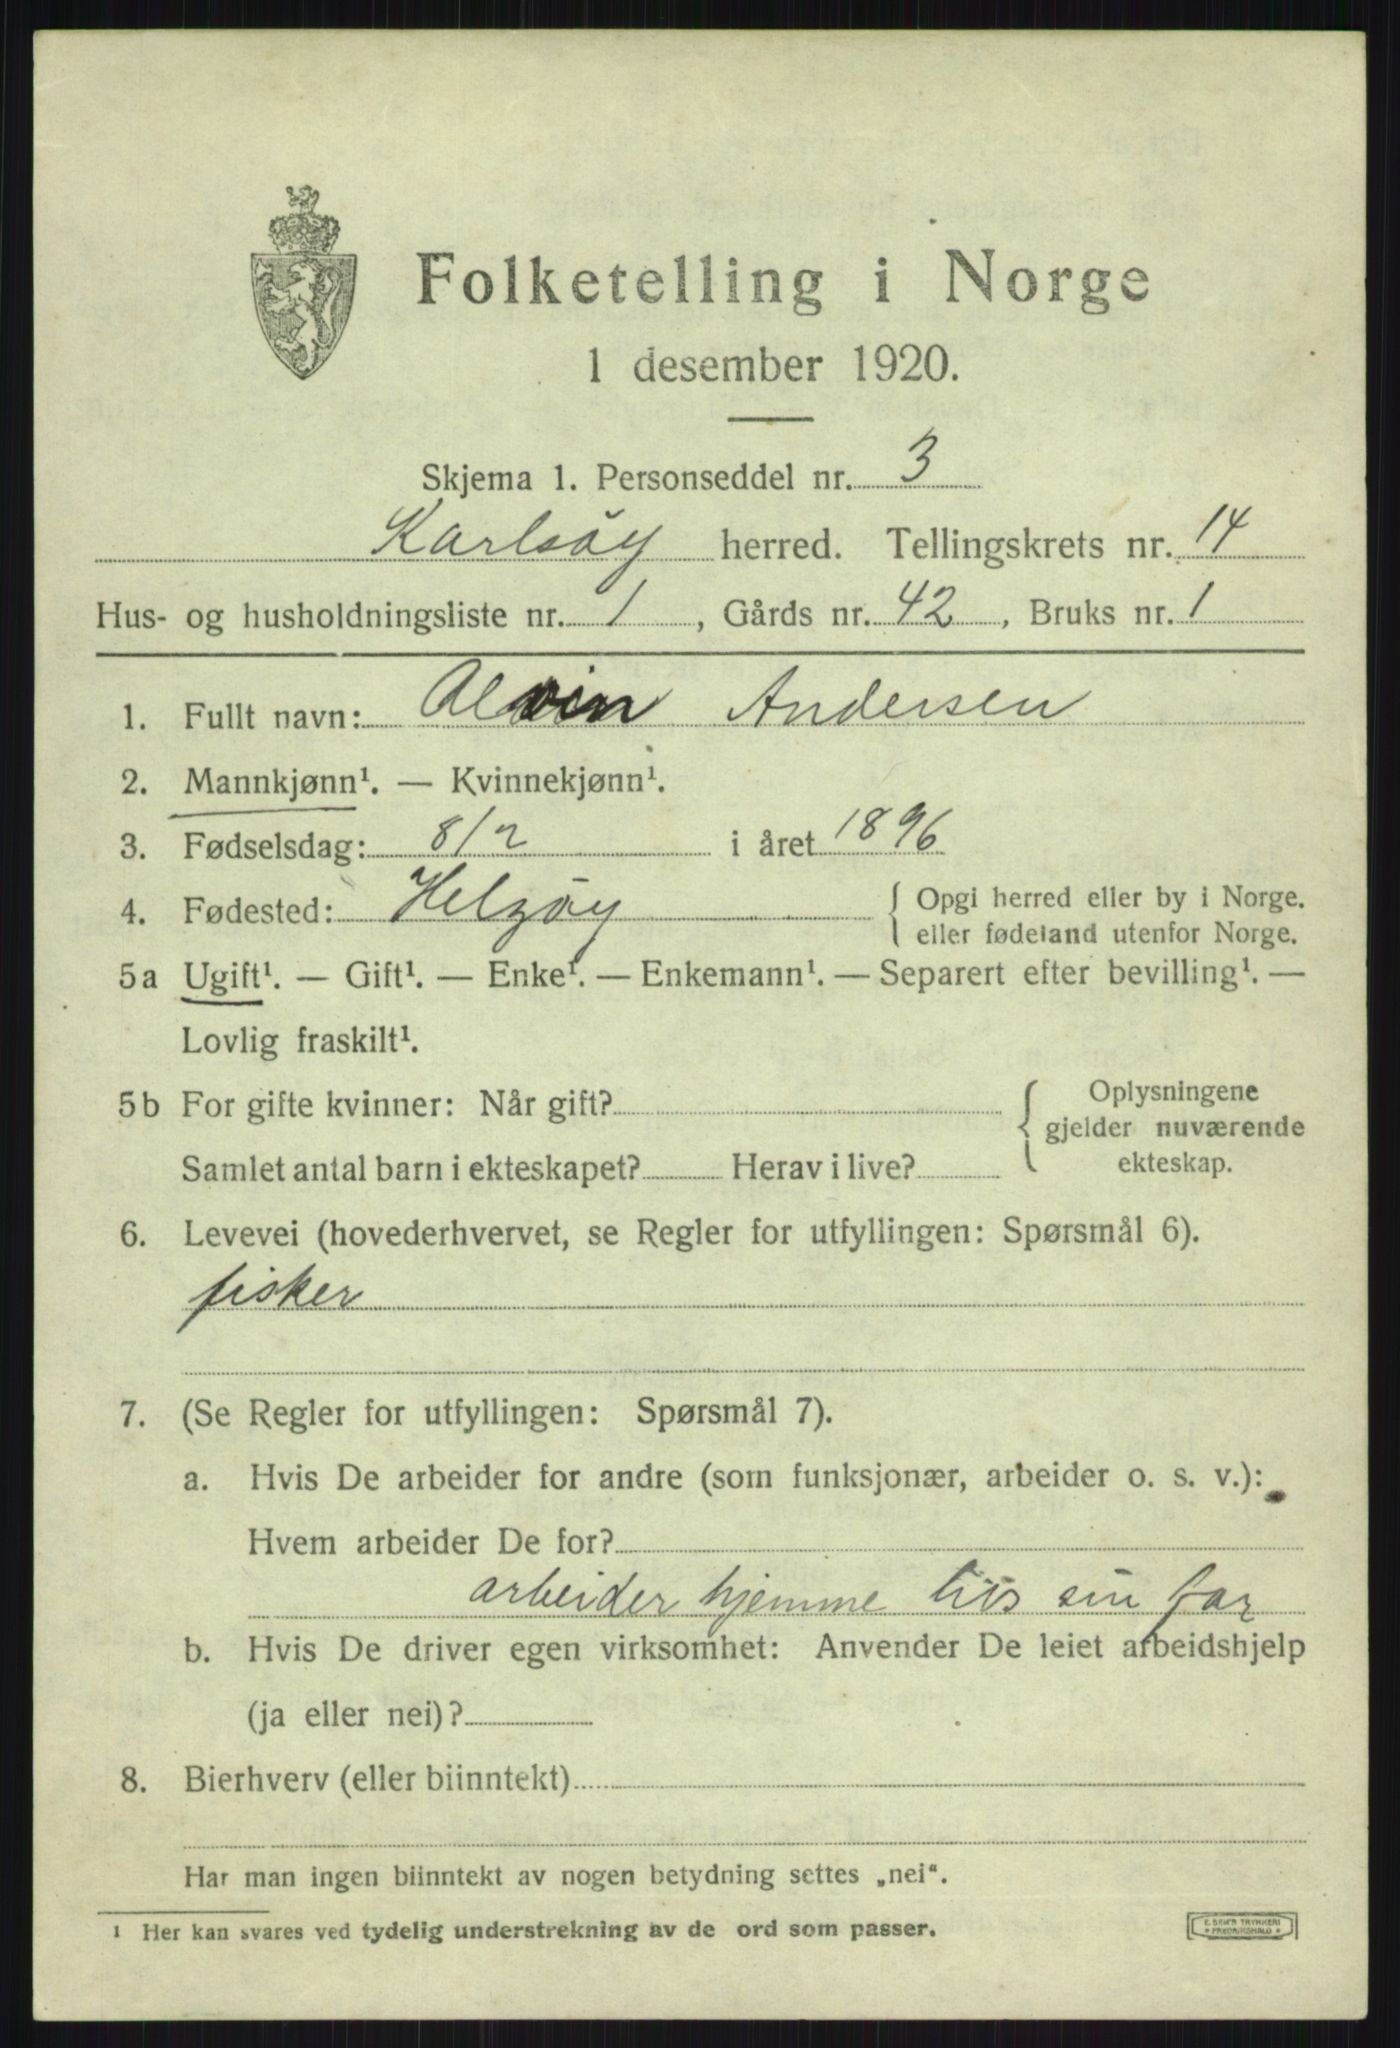 Folketelling i Norge
1 desember 1920.
Skjema 1. Personseddel nr. 3
Karlsöy herred. Tellingskrets nr. 14
Hus- og husholdningsliste nr. 1, Gårds nr. 42, Bruks nr. 1
1. Fullt navn: Alvin Andersen
2. Mannkjønn¹. — Kvinnekjønn¹.
3. Fødselsdag: 8/2 i året 1896
4. Fødested: Helgöy { Opgi herred eller by i Norge.
eller fødeland utenfor Norge.
5a Ugift¹. — Gift¹. — Enke¹. — Enkemann¹. — Separert efter bevilling¹. —
Lovlig fraskilt¹.
5b For gifte kvinner: Når gift? { Oplysningene
gjelder nuværende
Samlet antal barn i ekteskapet? Herav i live? ekteskap.
6. Levevei (hovederhvervet, se Regler for utfyllingen: Spørsmål 6).
fisker
7. (Se Regler for utfyllingen: Spørsmål 7).
a. Hvis De arbeider for andre (som funksjonær, arbeider o. s. v.):
Hvem arbeider De for?
arbeider hjemme sin far
b. Hvis De driver egen virksomhet: Anvender De leiet arbeidshjelp
(ja eller nei)?
8. Bierhverv (eller biinntekt)
Har man ingen biinntekt av nogen betydning settes „nei“.
1 Her kan svares ved tydelig understrekning av de ord som passer.
E. SEM'S TRYKKERI
FREDRIKSHALD